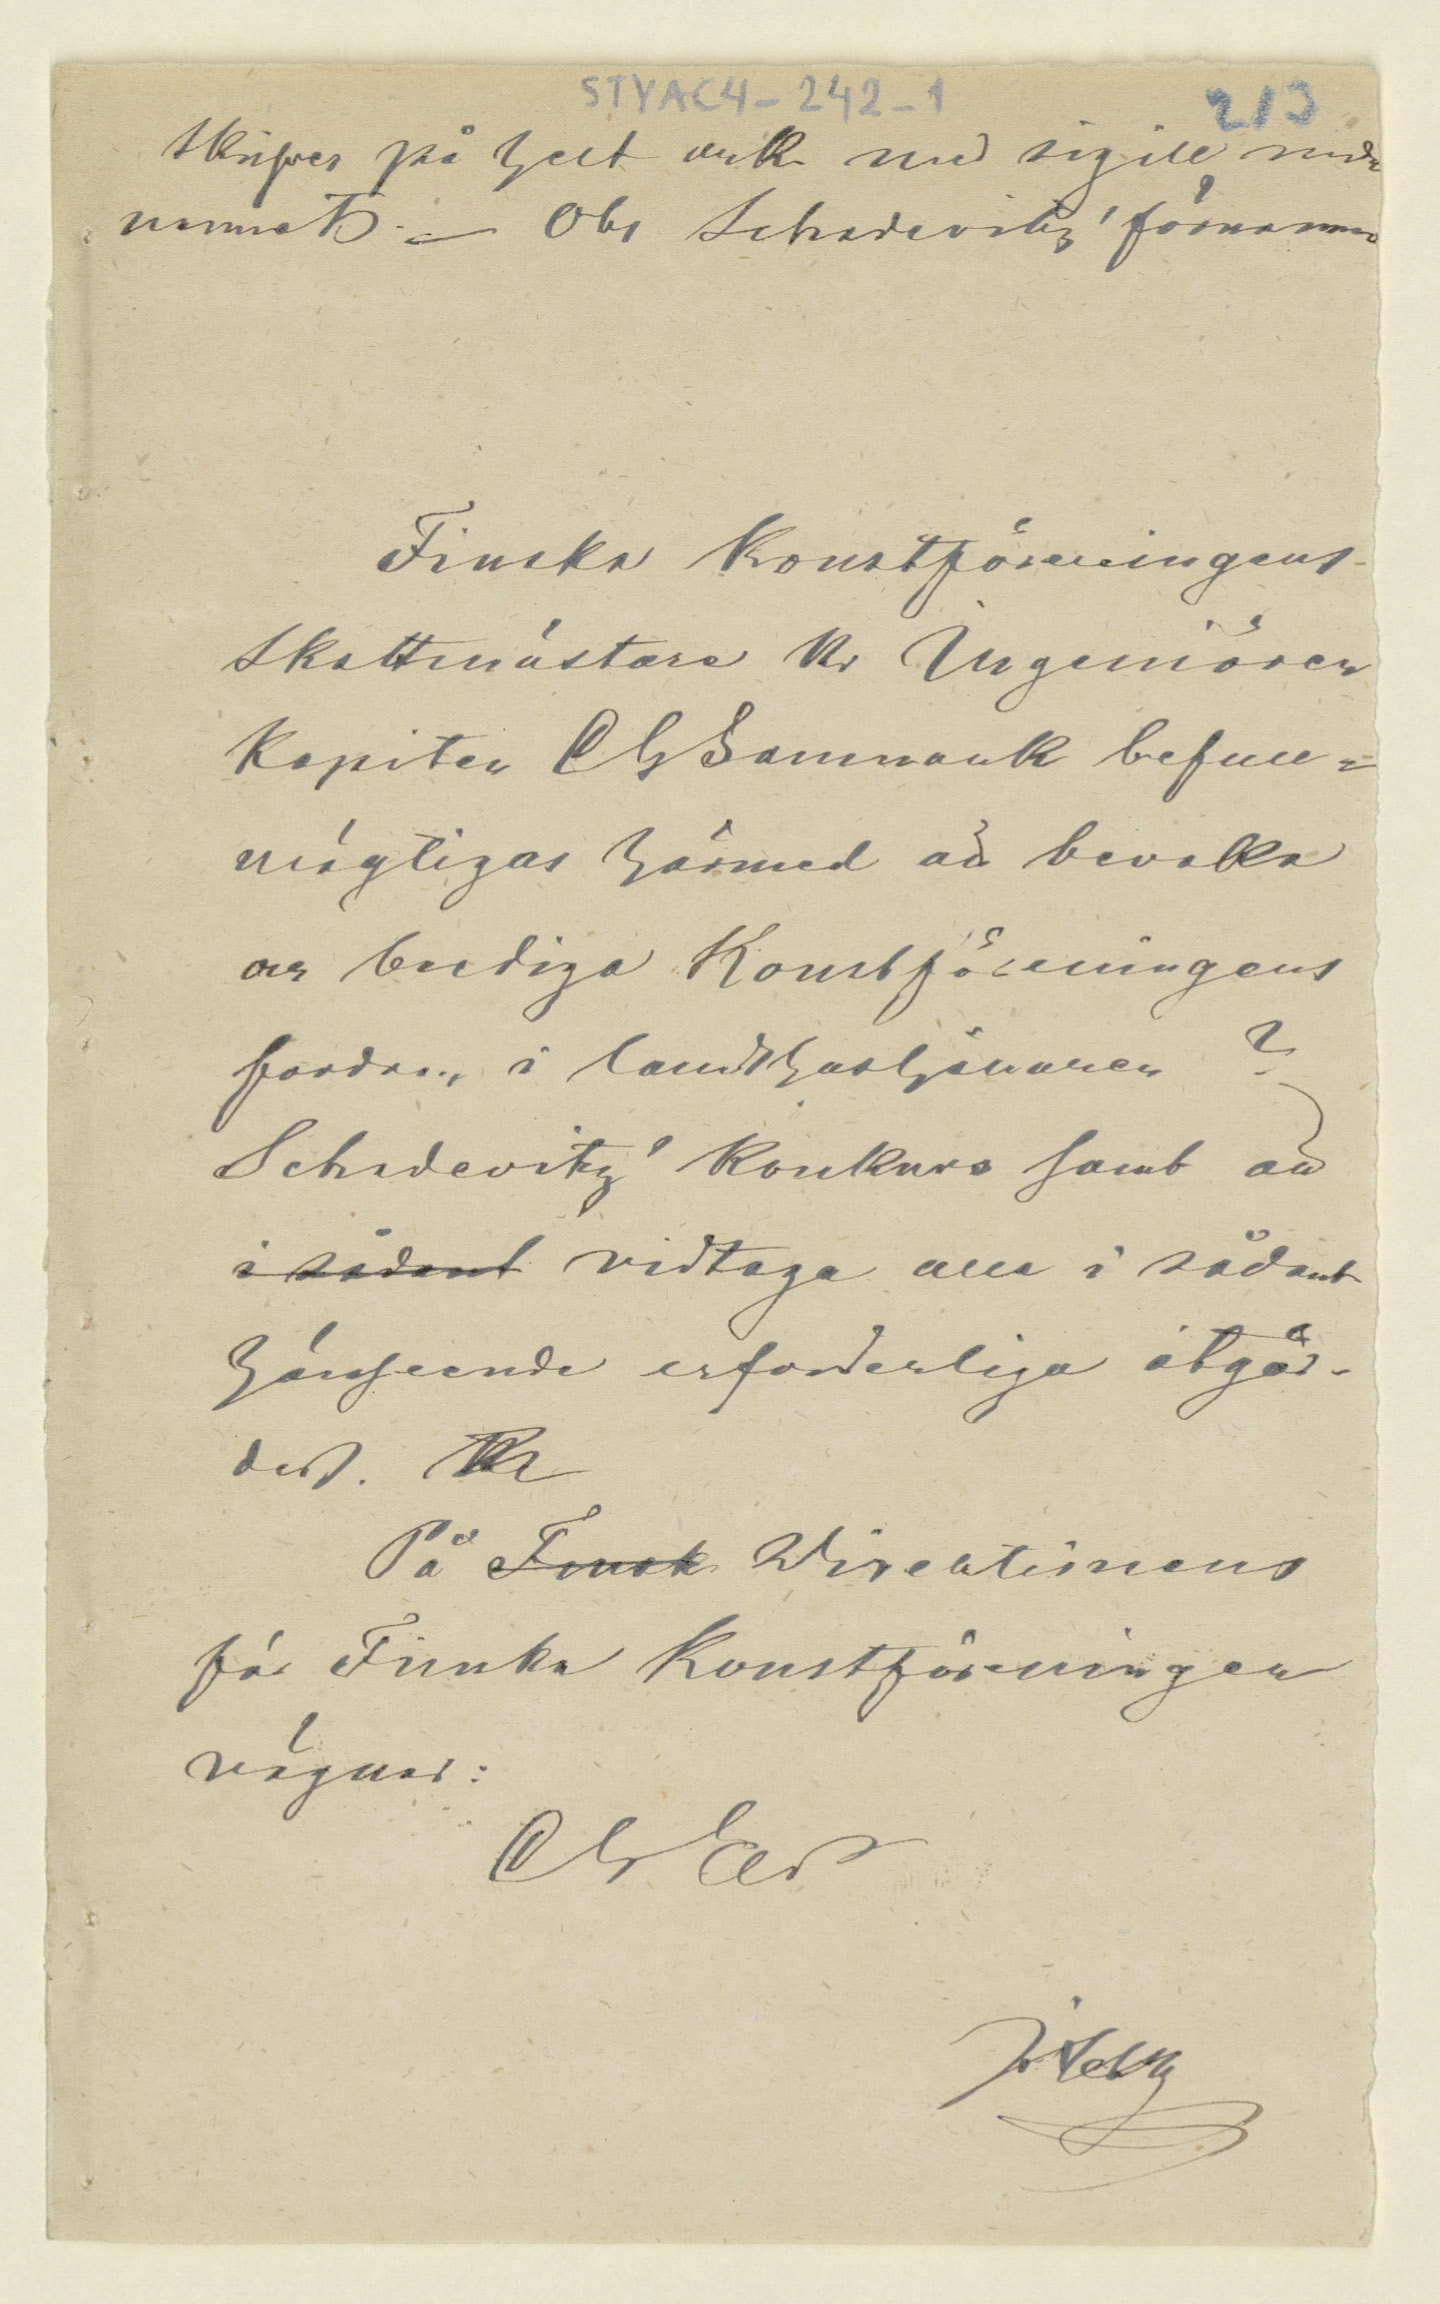 STYAC4-242-1 213
Skrifves på helt ark med sigill under
namnet. — Obs Schadevitz' förnamn
Finska Konstföreningens
Skattmästare Hr Ingeniören
Kapiten C G Sanmark befull=
mägtigas härmed att bevaka
och beediga Konstföreningens
fordran i landthushållaren ?
Schadevitz' Konkurs samt att
i sådant vidtaga alla i sådant
hänseende erforderliga åtgär-
der.
På Finsk Direktionens
för Finska Konstföreningen
vägnar:
C G Est